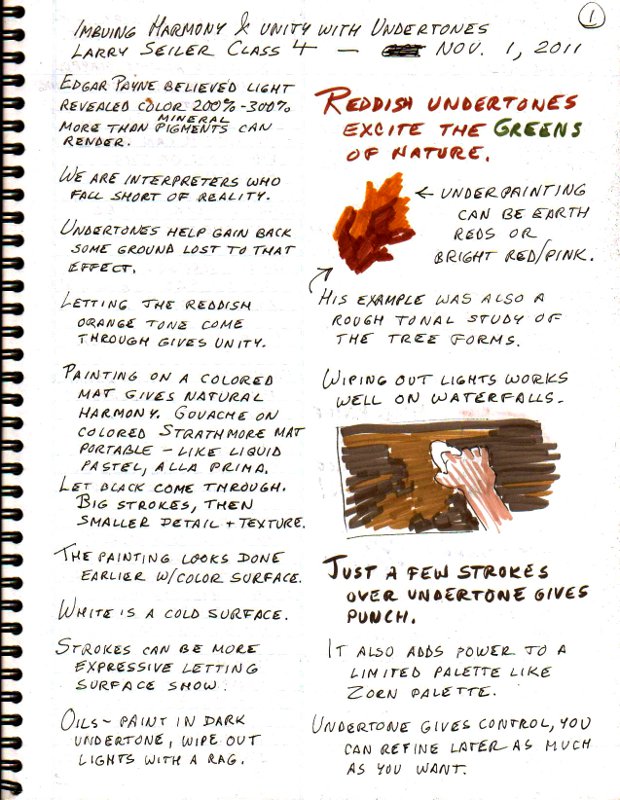 1
Imbuing Harmony & Unity with Undertones
Larry Seiler Class 4 — Nov. 1, 2011
Edgar Payne believed light
revealed color 200%-300%
more than mineral pigments can
render.
We are interpreters who
fall short of reality.
Undertones help gain back
some ground lost to that
effect.
Letting the reddish
orange tone come
through gives unity.
Painting on a colored
mat gives natural
harmony. Gouache on
colored Strathmore mat
portable – like liquid
pastel, alla prima.
Let black come through.
Big strokes, then
smaller detail + texture.
The painting looks done
earlier w/color surface.
White is a cold surface.
Strokes can be more
expressive letting
surface show.
Oils – paint in dark
undertone, wipe out
lights with a rag.
Reddish undertones
excite the Greens
of nature.
← Underpainting
can be earth
reds or
bright red/pink.
His example was also a
rough tonal study of
the tree forms.
Wiping out lights works
well on waterfalls.
Just a few strokes
over undertone gives
punch.
It also adds power to a
limited palette like
Zorn palette.
Undertone gives control, you
can refine later as much
as you want.